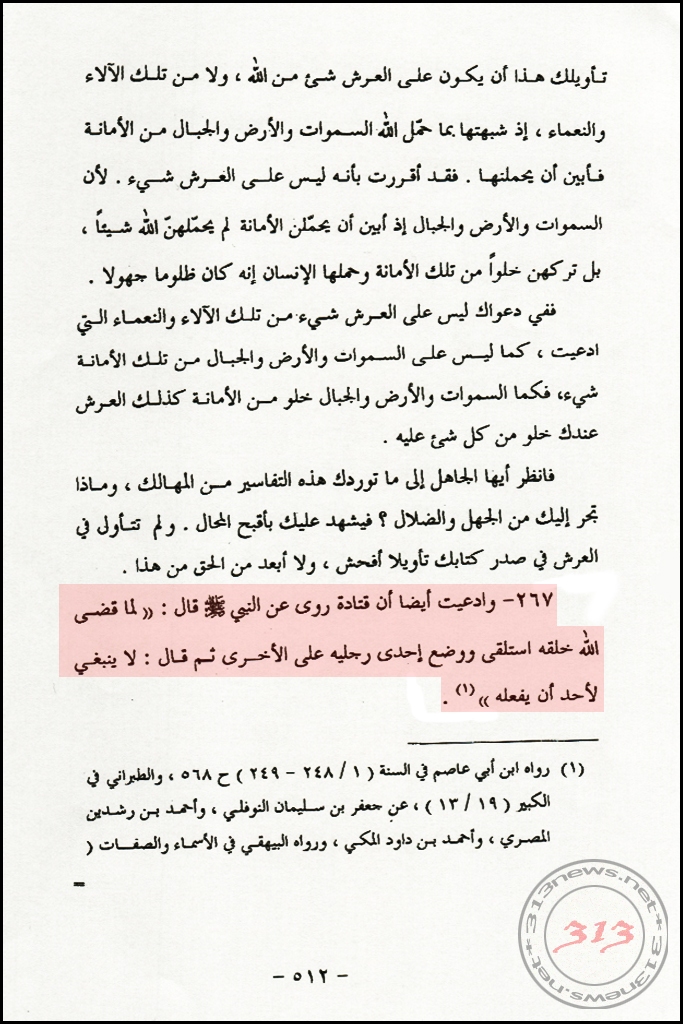 تأويلك هذا أن يكون على العرش شئ من الله ، ولا من تلك الآلاء
والنعماء ، إذ شبهتها بما حمّل الله السموات والأرض والجبال من الأمانة
فأبين أن يحملنها . فقد أقررت بأنه ليس على العرش شيء . لأن
السموات والأرض والجبال إذ أبين أن يحمّلن الأمانة لم يحمّلهنّ الله شيئاً ،
بل تركهن خلواً من تلك الأمانة وحملها الإنسان إنه كان ظلوما جهولا .
ففي دعواك ليس على العرش شيء من تلك الآلاء والنعماء التي
ادعيت ، كما ليس على السموات والأرض والجبال من تلك الأمانة
شيء، فكما السموات والأرض والجبال خلو من الأمانة كذلك العرش
عندك خلو من كل شئ عليه .
فانظر أيها الجاهل إلى ما توردك هذه التفاسير من المهالك ، وماذا
تجر إليك من الجهل والضلال ؟ فيشهد عليك بأقبح المحال . ولم تتأول في
العرش في صدر كتابك تأويلا أفحش ، ولا أبعد من الحق من هذا .
٢٦٧- وادعيت أيضا أن قتادة روى عن النبي ﷺ قال : « لما قضى
الله خلقه استلقى ووضع إحدى رجليه على الأخرى ثم قال : لا ينبغي
لأحد أن يفعله »(١) .
(١) رواه ابن أبي عاصم في السنة ( ١ / ٢٤٨ - ٢٤٩ ) ح ٥٦٨ ، والطبراني في
الكبير ( ١٩ / ١٣ ) ، عن جعفر بن سليمان النوفلي ، وأحمد بن رشدين
المصري ، وأحمد بن داود المكي ، ورواه البيهقي في الأسماء والصفات (
=
313news.net*313news.net*
313
- ٥١٢ -